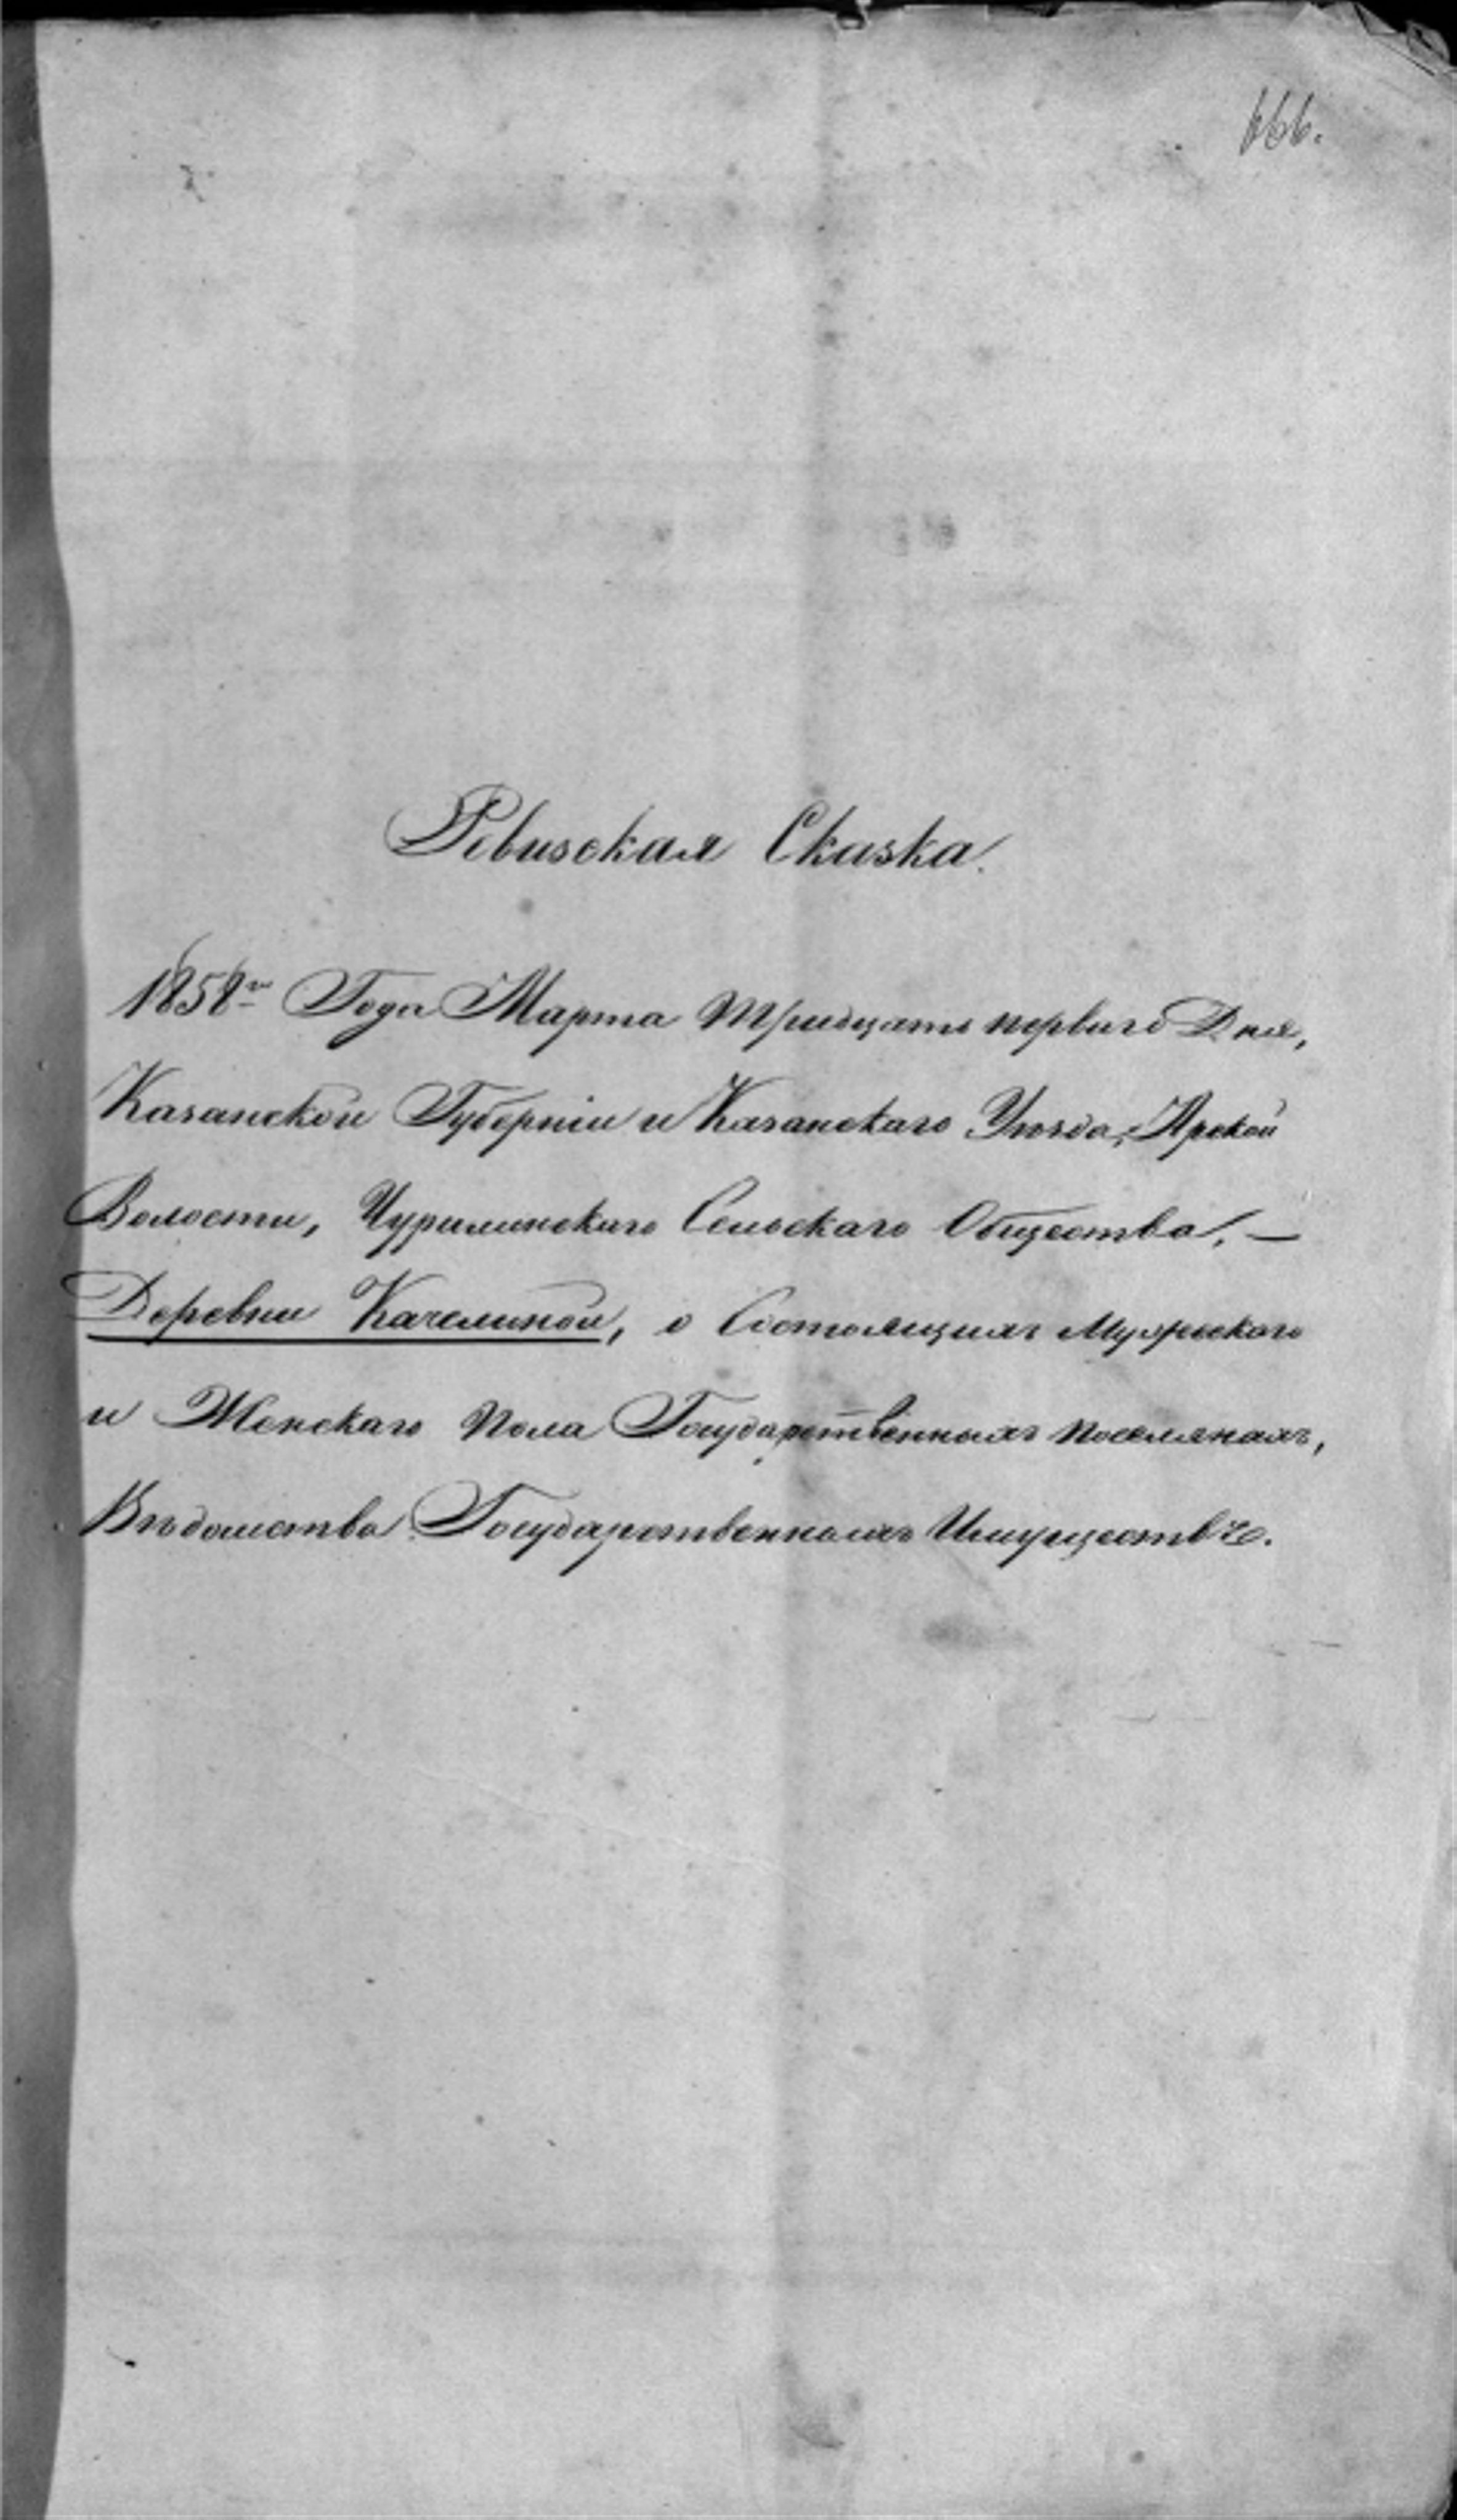 666.
Ревизская Сказка.
1858го Года Марта Тридцать перваго Дня,
Казанской Губерніи и Казанскаго Уѣзда, Арской
Волости, Чурилинскаго Сельскаго Общества, —
Деревни Качелиной, о Состоящихъ Мужескаго
и Женскаго Пола Государственныхъ поселянахъ,
Вѣдомства Государственныхъ Имуществъ.